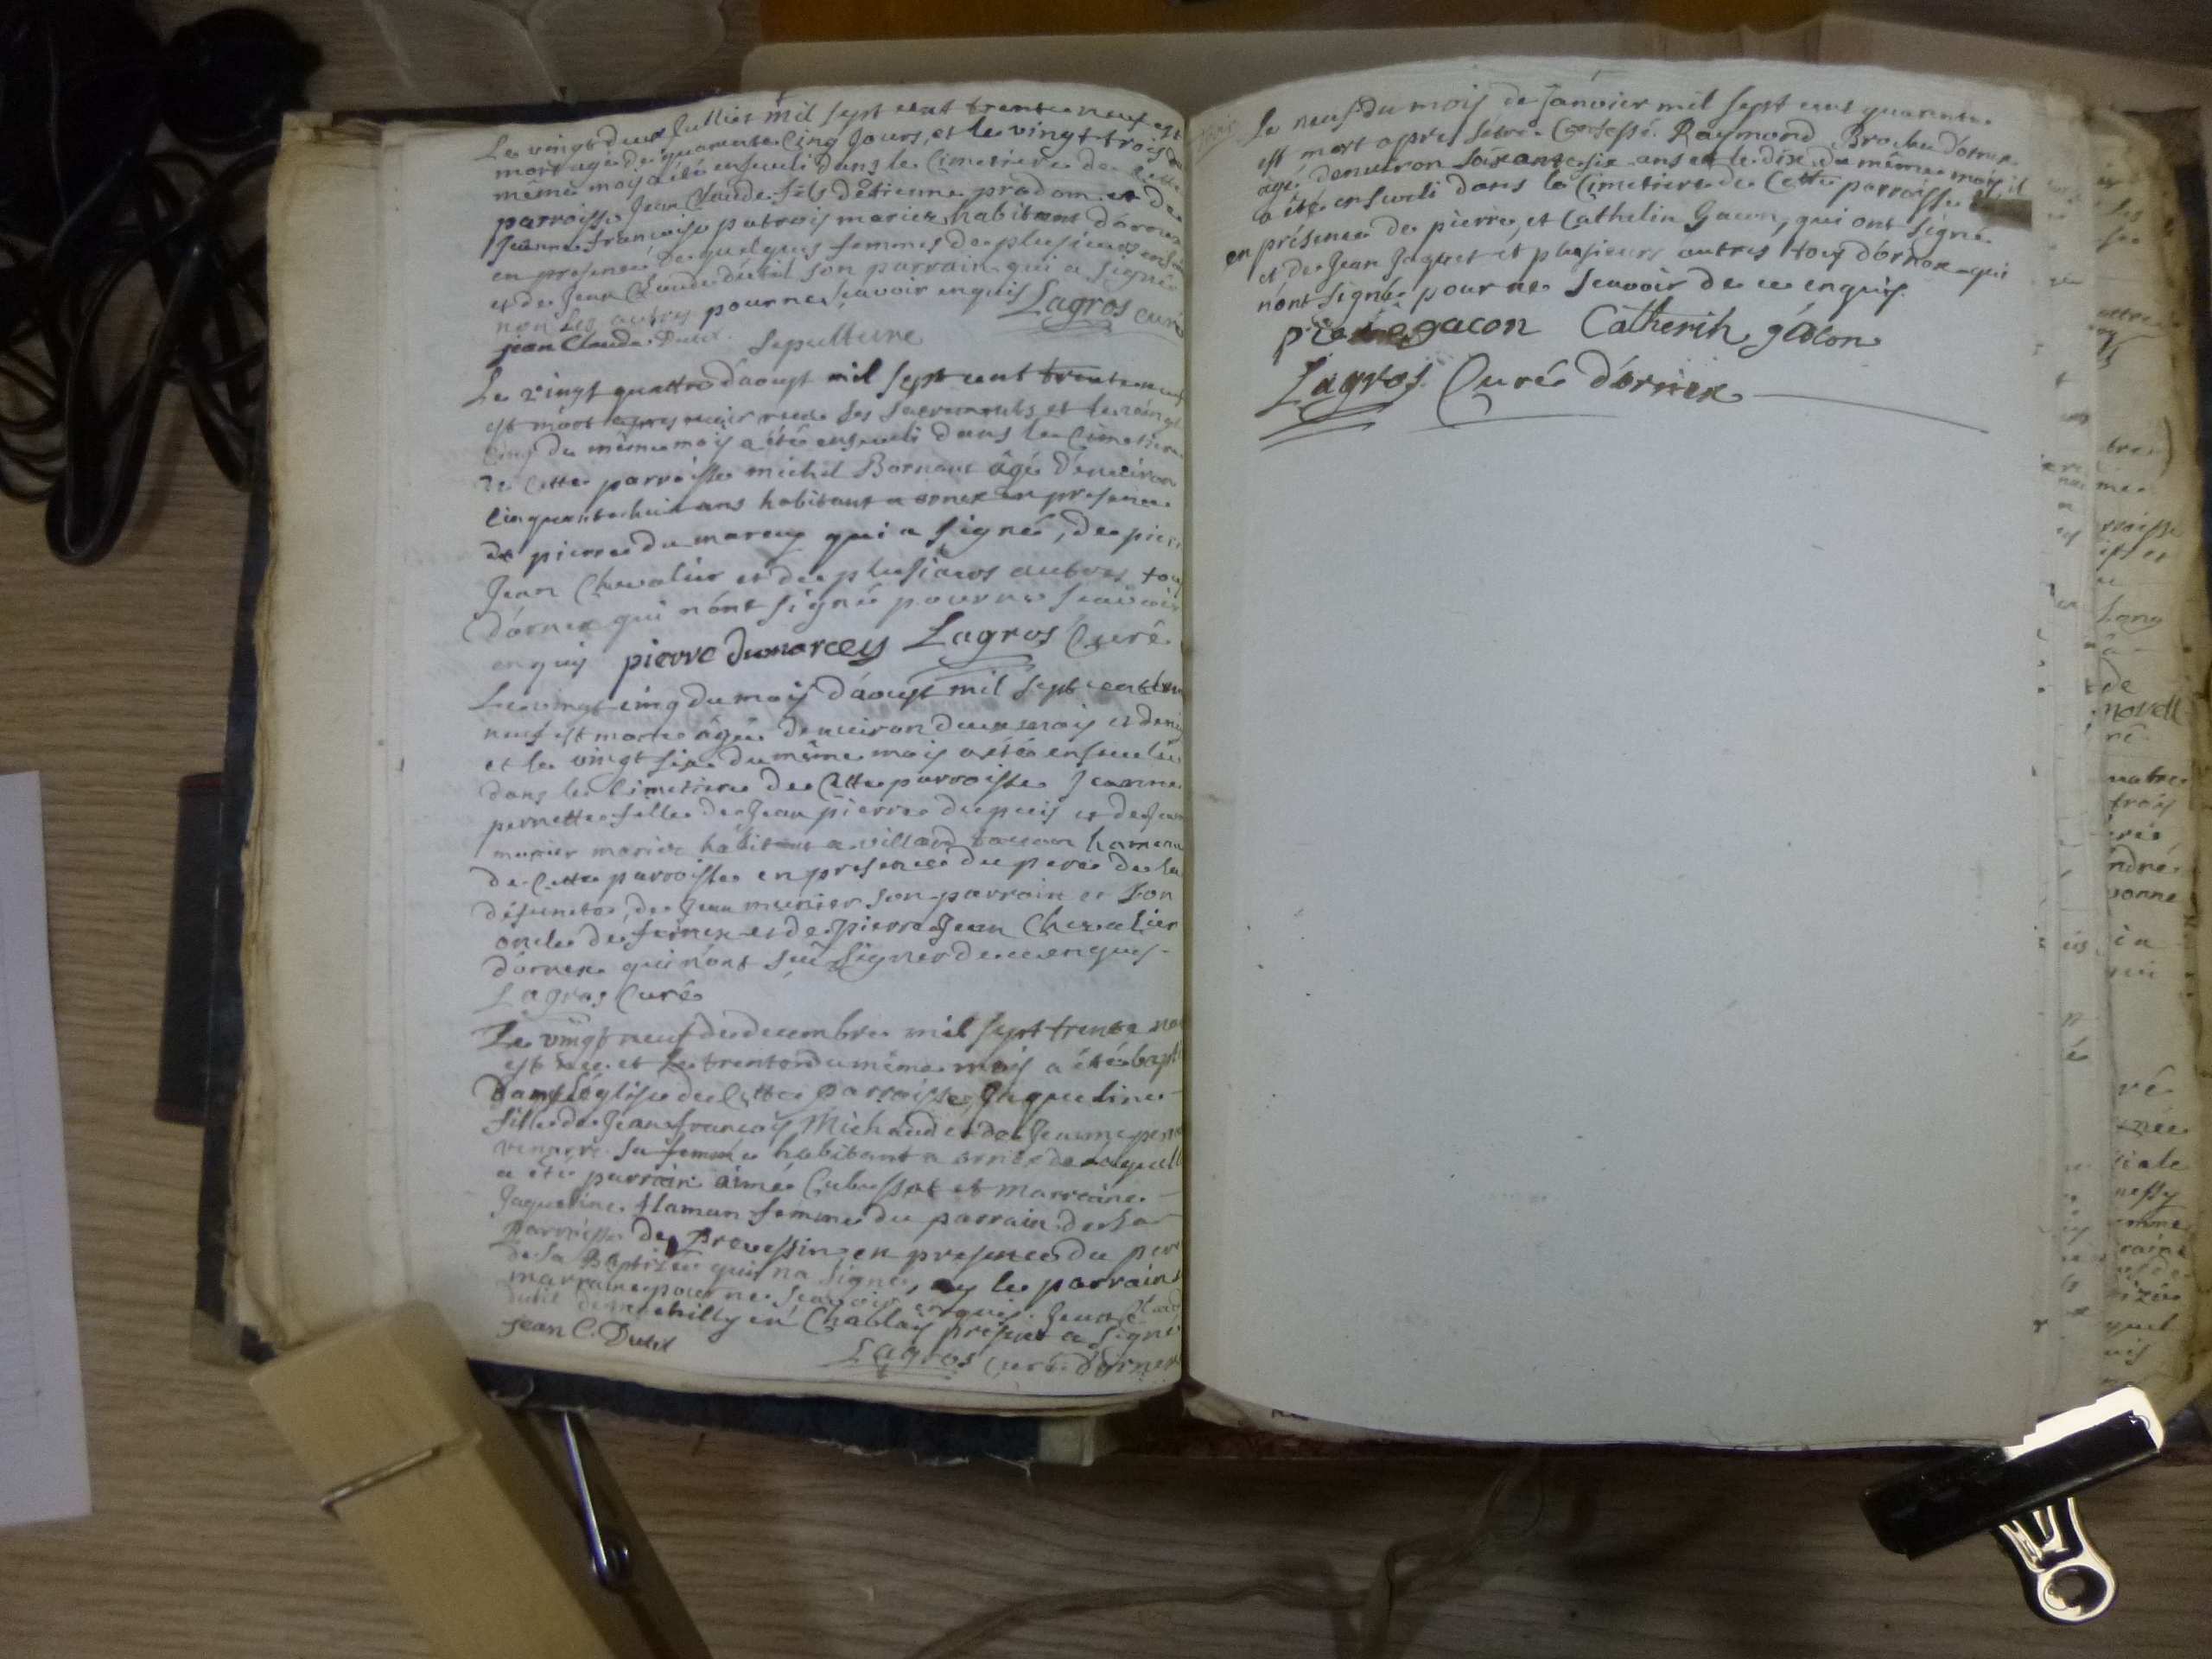 Le vingt deux Julliet mil sept cent trente neuf est
mort agé de quarante Cinq Jours, et le vingt trois du
même mois a été enseveli dans le Cimetiere de cette
parroisse Jean Claude fils d'étienne pradom et de
Jeanne francoise patrois mariez habitant d'ornex
en presence de quelques femmes de plusieurs
et de Jean Claude dutil son parrain qui a signé
non les autres pour ne scavoir enquis Lagros curé
jean Claude Dutil Sepulture
Le vingt quattre d'aoust mil sept cent trente neuf
est mort apres avoir receu ses sacrements et le vingt
Cinq du même mois a été enseveli dans le Cimetiere
de Cette parroisse michel Bornant âgé d'environ
Cinquante huit ans habitant a ornex en presence
de pierre du marcey qui a signé, de pier
Jean Chevalier et de plusieurs autres tous
d'ornex qui n'ont signé pour ne scavoir
enquis pierre dumarcey Lagros Curé
Le vingt cinq du mois d'aoust mil sept cent tren
neuf est morte âgée denviron deux mois et demi
et le vingt six du même mois a été ensevelie
dans le Cimetiere de Cette parroisse Jeanne
pernette fille de Jean pierre dupuis et de Jean
munier mariez habitant a villard hameau
de Cette parroisse en presence du pere de la
défuncte, de Jean munier son parrain et son
oncle de fernex et de pierre Jean Chevalier
d'ornex qui n'ont sçu signer de ce enquis
Lagros Curé
Le vingt neuf de decembre mil sept trente neu
est née et le trente du même mois a été bapt
dans l'église de Cette parroisse Jaqueline
fille de Jean francois Michaud et de Jeanne per
sa femme habitant a ornex de laquell
a été parrain aimé Cubussat et marraine
Jaqueline Hamun femme du parrain de la
Parroisse de Prevessin en presence du pere
de la Baptisée qui na signé, ny le parrain
marraine pour ne scavoir enquis. Jean Claud
dutil de machilly en Chablay présent a signé
Jean C. Dutil Lagros curé d'ornex
Le neuf du mois de Janvier mil sept cent quarante
est mort apres s'étre Confessé Raymond Brochu d'ornex
agé denviron soixante six ans et le dix du même mois il
a été enseveli dans le Cimetiere de Cette parroisse
en présence de pierre et Cathelin Gacon, qui ont signé
et de Jean Jaquet et plusieurs autres tous d'ornex qui
n'ont signé pour ne scavoir de ce enquis
pierre gacon Catherin gacon
Lagros Curé d'ornex